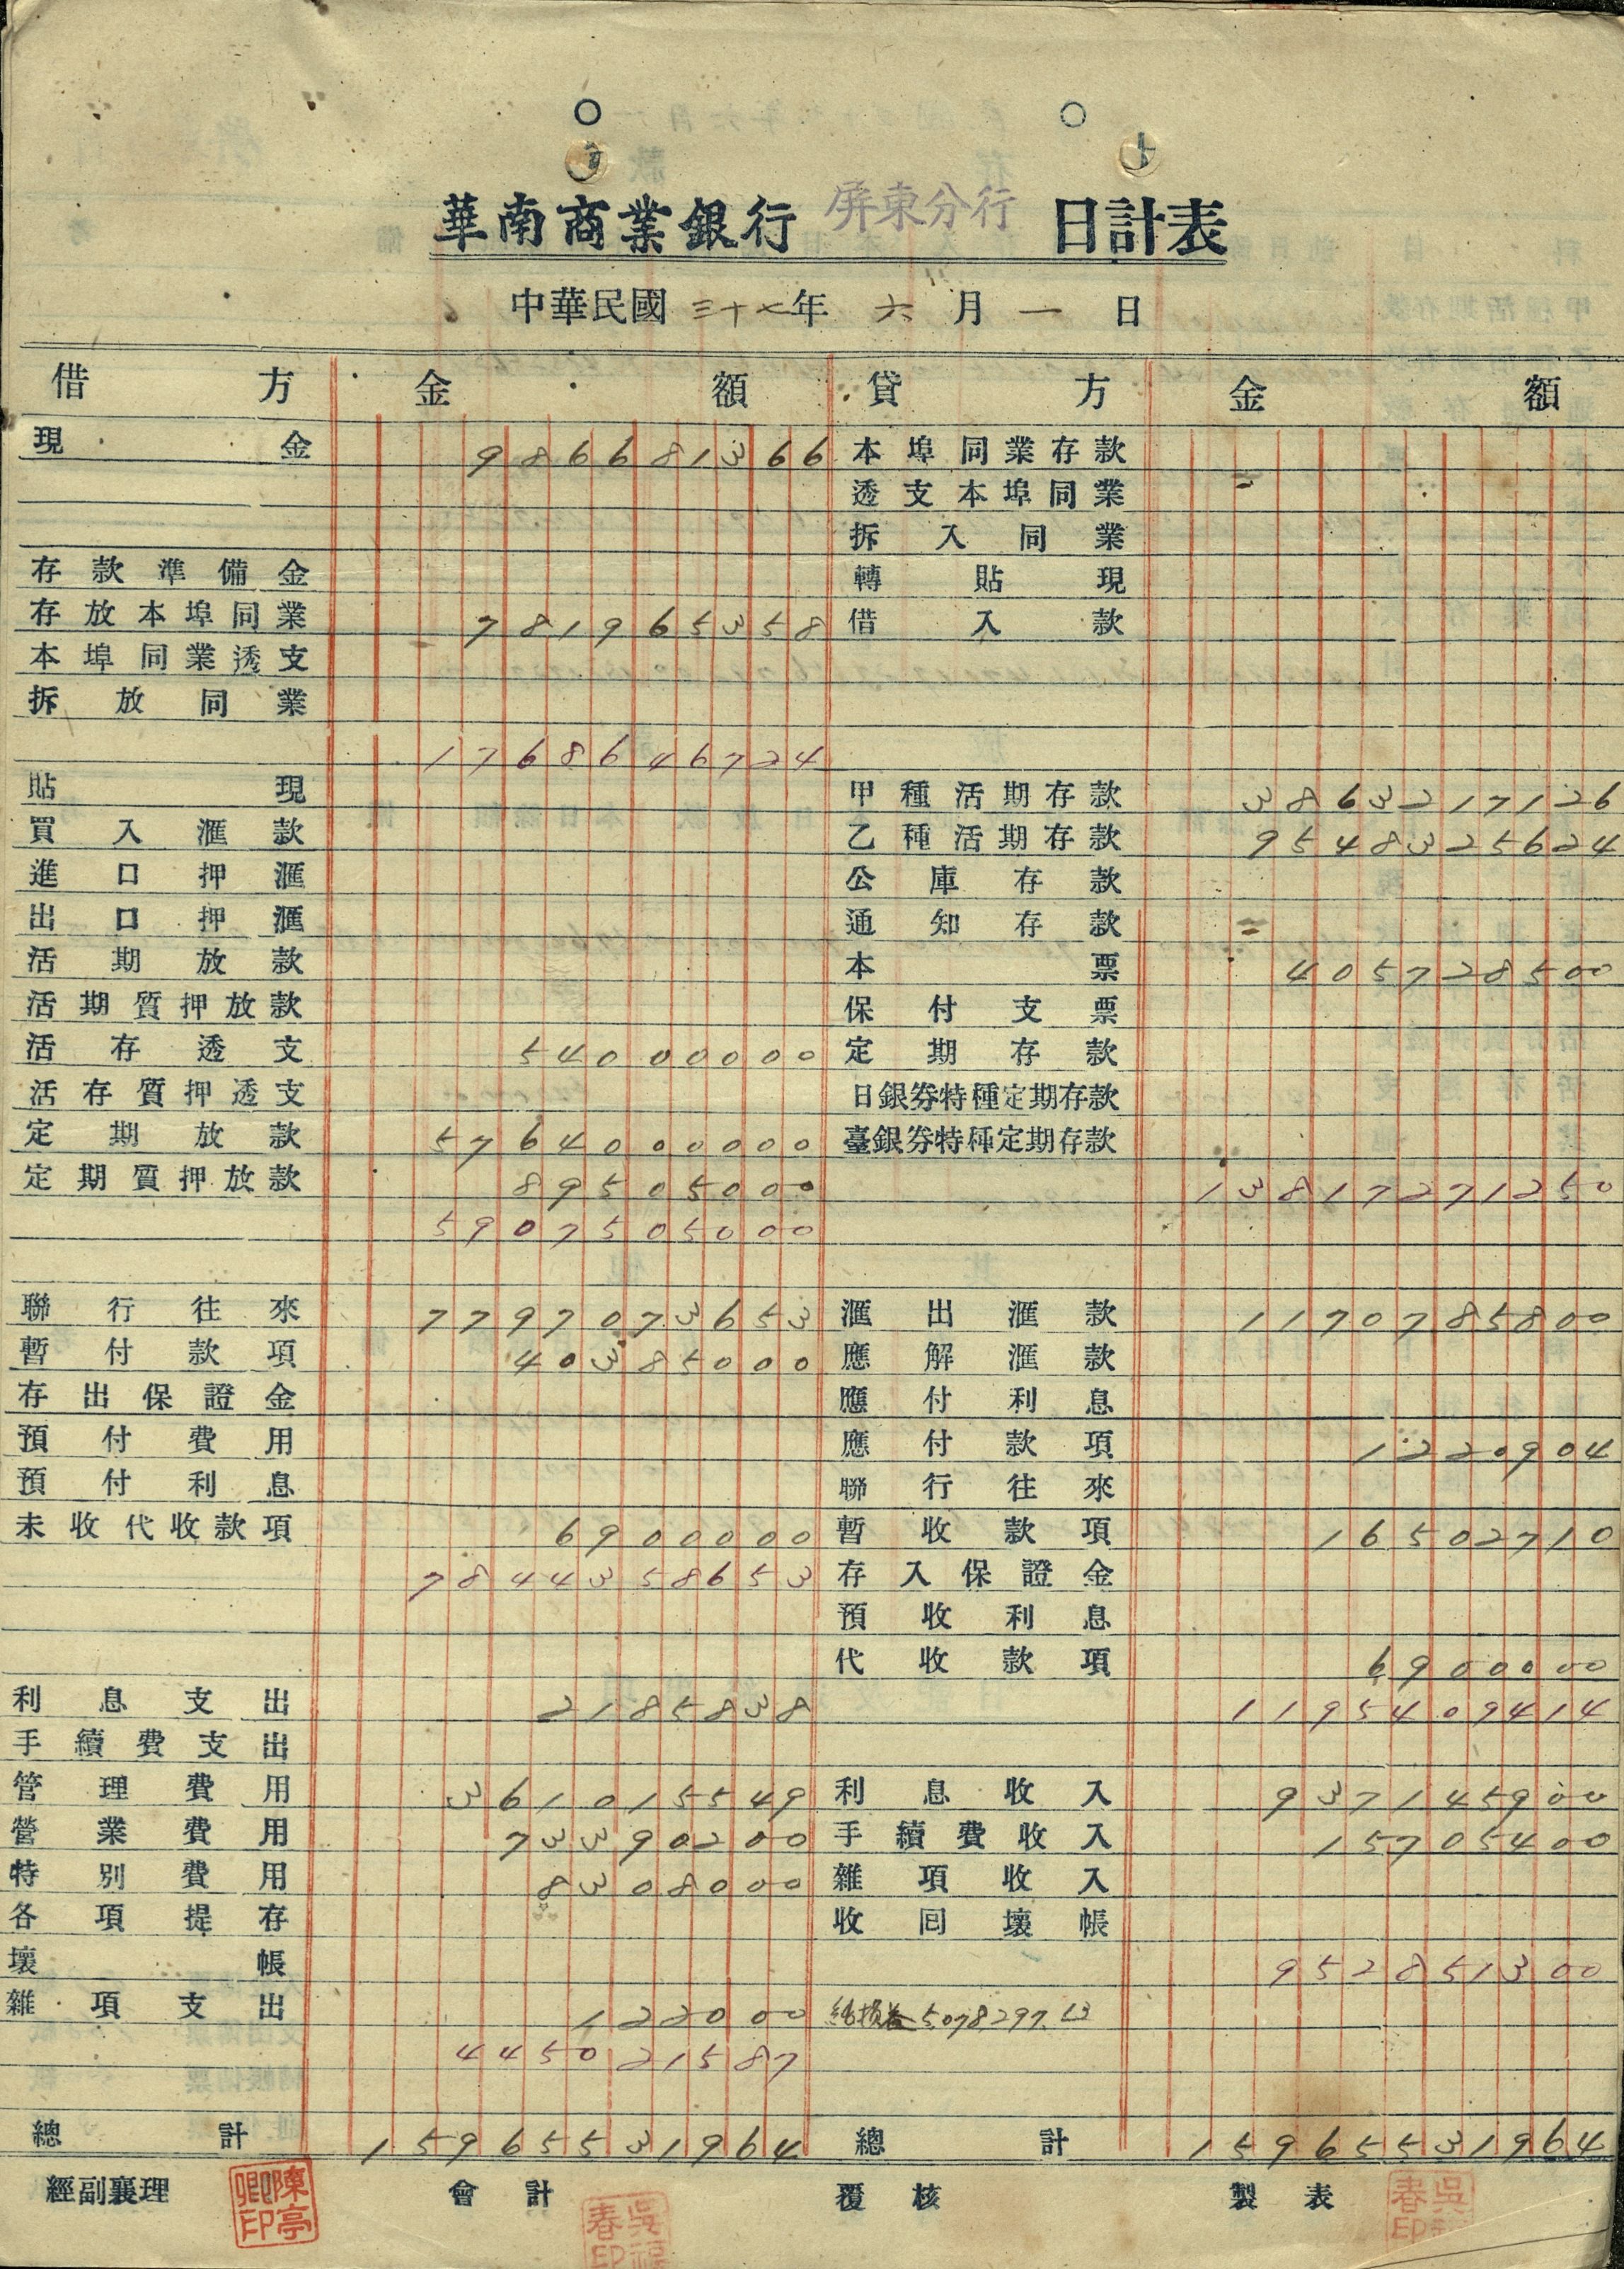 華南商業銀行 屏東分行 日計表
中華民國三十七年 六月一日
借方 金額 貸方 金額
現金 986681366 本埠同業存款
透支本埠同業
拆入同業
存款準備金 轉貼現
存放本埠同業 781965358 借入款
本埠同業透支
拆放同業
1768646724
貼現 甲種活期存款 3863217126
買入滙款 乙種活期存款 9548325624
進口押滙 公庫存款
出口押滙 通知存款
活期放款 本票 405728500
活期質押放款 保付支票
活存透支 54000000 定期存款
活存質押透支 日銀券特種定期存款
定期放款 5764000000 臺銀券特種定期存款
定期質押放款 89505000 13817271250
5907505000
聯行往來 7797073653 滙出滙款 1170785800
暫付款項 40385000 應解滙款
存出保證金 應付利息
預付費用 應付款項 1220904
預付利息 聯行往來
未收代收款項 6900000 暫收款項 16502710
7844358653 存入保證金
預收利息
代收款項 6900000
利息支出 2185838 1195409414
手續費支出
管理費用 361015549 利息收入 937145900
營業費用 73390200 手續費收入 15705400
特別費用 8308000 雜項收入
各項提存 收回壞帳
壞帳 952851300
雜項支出 122000 純損益 5,078,297.13
445021587
總計 15965531964 總計 15965531964
經副襄理 會計 覆核 製表
陳亭卿印 吳福春印 吳福春印